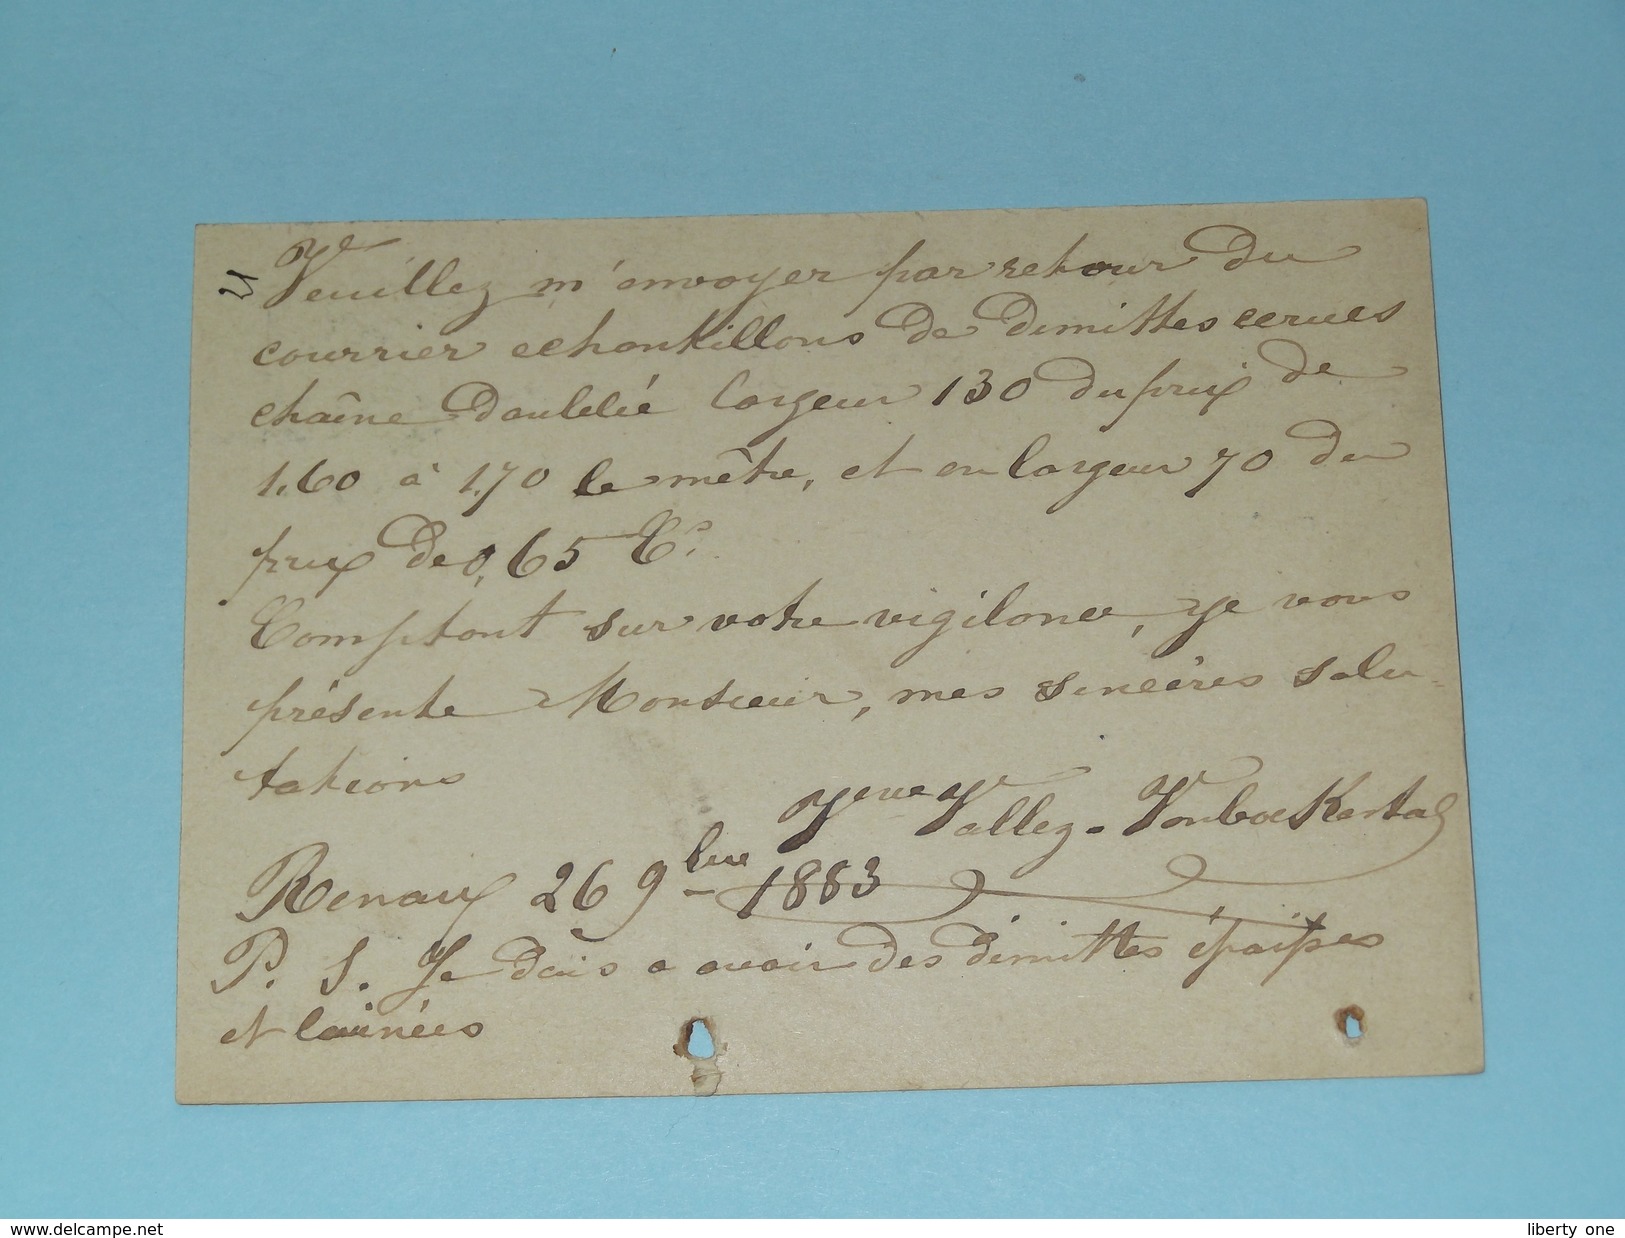 Veuillez m'envoyer par retour du
courrier echantillons de dimittes cerues
chaîne doublée largeur 130 du prix de
1.60 à 1.70 le mètre, et en largeur 70 du
prix de 0,65 Cs.
Comptant sur votre vigilance, je vous
présente Monsieur, mes sincères salu-
tations
Veuve Vallez-Vanboekestal
Renaix 26 9bre 1883
P. S. Je dois a avoir des dimittes épaisses
et lainées
www.delcampe.net
liberty one